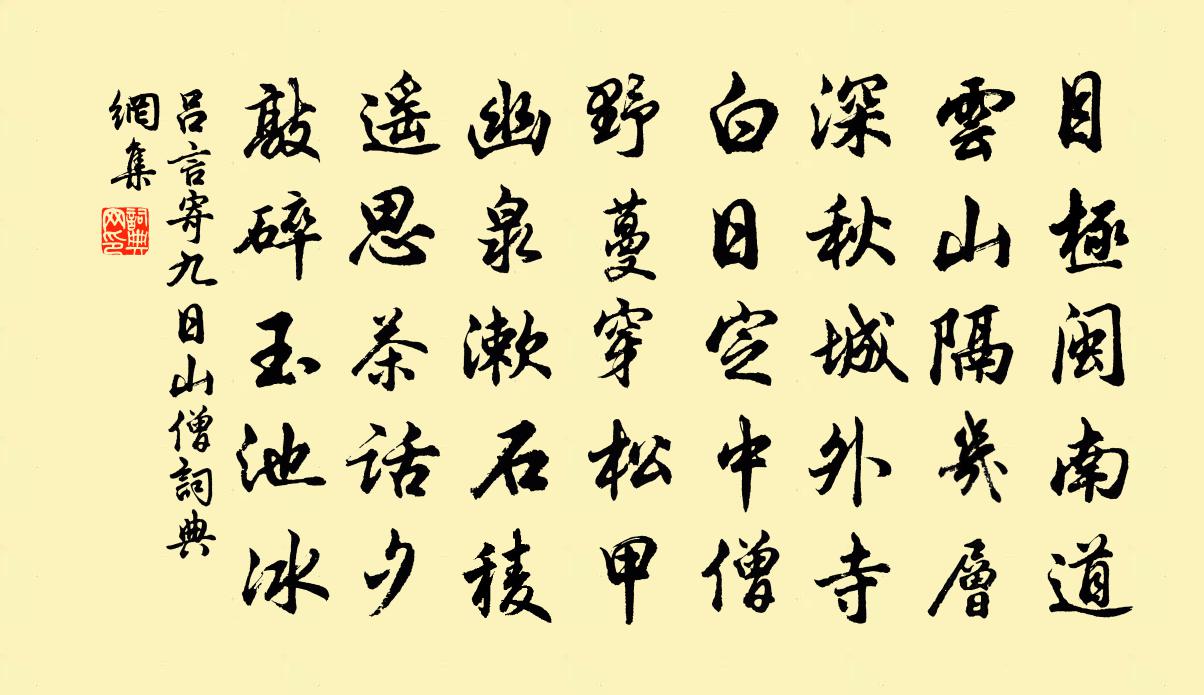 目極閩南道
雲山隔幾層
深秋城外寺
白日定中僧
野蔓穿松甲
幽泉漱石稜
遥思茶話夕
敲碎玉池冰
呂言寄九日山僧詞典
網集
詞典網印